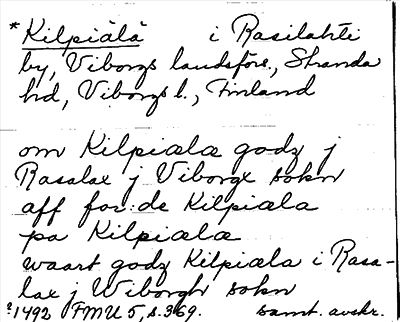 *Kilpiälä i Rasilahti
by, Viborgs landsförs., Stranda
hd, Viborgs l., Finland
om Kilpiælæ godz j
Rasalax j Viborgx sokn
aff for:de Kilpiæla
pa Kilpiælæ
waart godz Kilpiæla i Rasa-
lax j Wiborgh sokn
?1492 FMU 5, s. 369. samt. avskr.